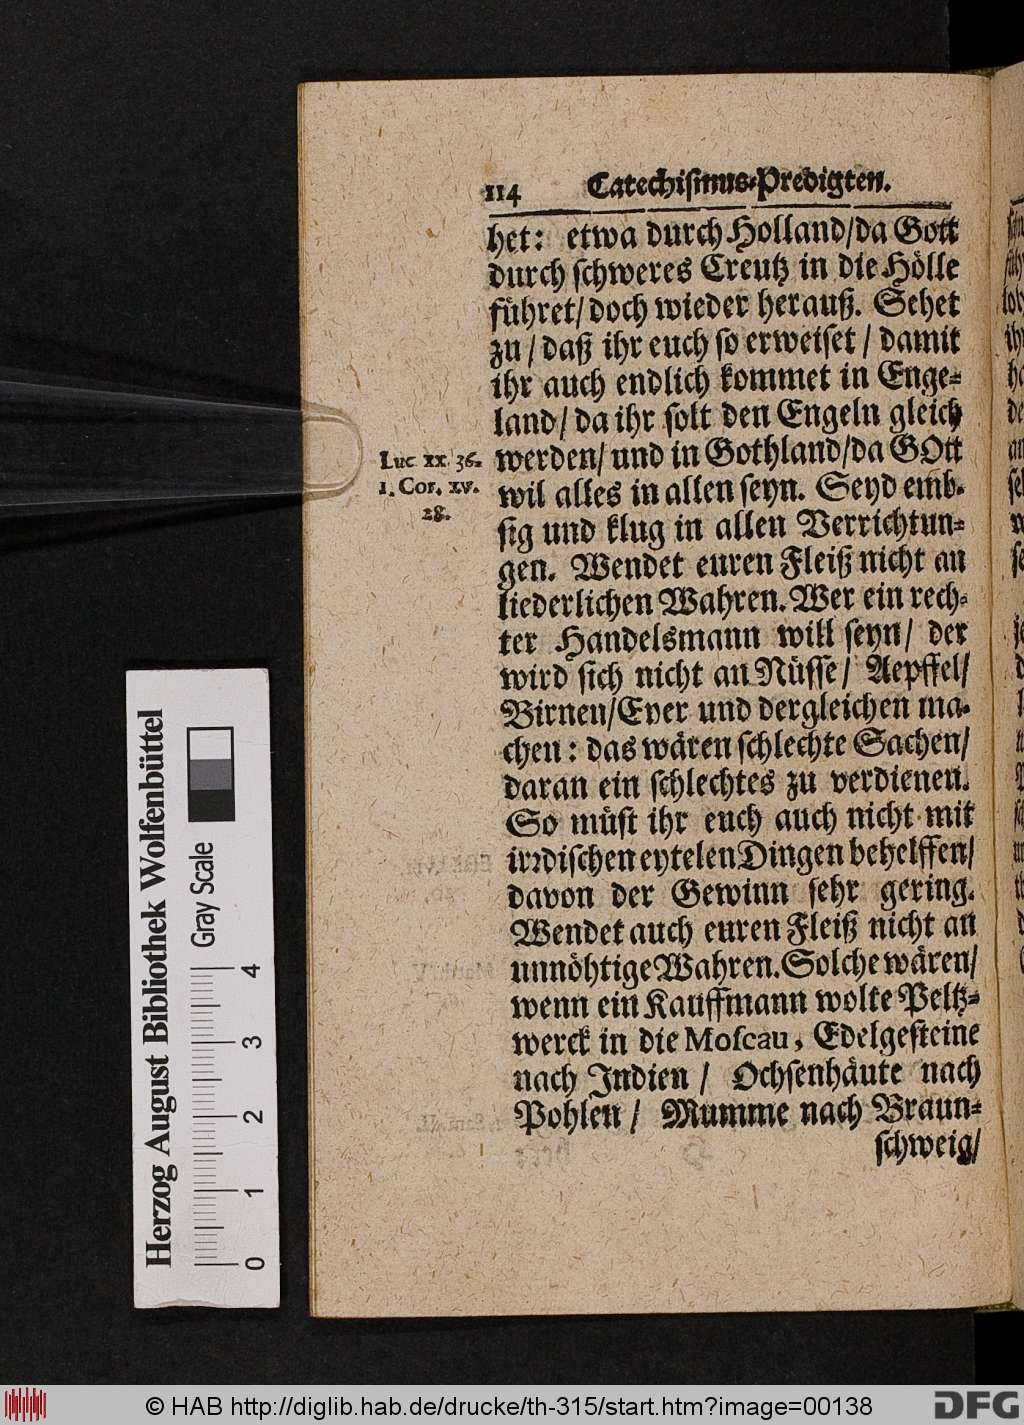 114 Catechismus-Predigten.
het: etwa durch Holland/da Gott
durch schweres Creutz in die Hölle
führet/doch wieder herauß. Sehet
zu/daß ihr euch so erweiset/damit
ihr auch endlich kommet in Enge-
land/da ihr solt den Engeln gleich
Luc. xx. 36. werden/und in Gothland/da GOtt
1. Cor. xv. 28. wil alles in allen seyn. Seyd emb-
sig und klug in allen Verrichtun-
gen. Wendet euren Fleiß nicht an
liederlichen Wahren. Wer ein rech-
ter Handelsmann will seyn/ der
wird sich nicht an Nüsse/ Aepffel/
Birnen/Eyer und dergleichen ma-
chen: das wären schlechte Sachen/
daran ein schlechtes zu verdienen.
So müst ihr euch auch nicht mit
irrdischen eytelen Dingen behelffen/
davon der Gewinn sehr gering.
Wendet auch euren Fleiß nicht an
unnöhtige Wahren. Solche wären/
wenn ein Kauffmann wolte Peltz-
werck in die Moscau, Edelgesteine
nach Indien / Ochsenhäute nach
Pohlen / Mumme nach Braun-
schweig/
Herzog August Bibliothek Wolfenbüttel
Gray Scale
0 1 2 3 4
© HAB http://diglib.hab.de/drucke/th-315/start.htm?image=00138
DFG